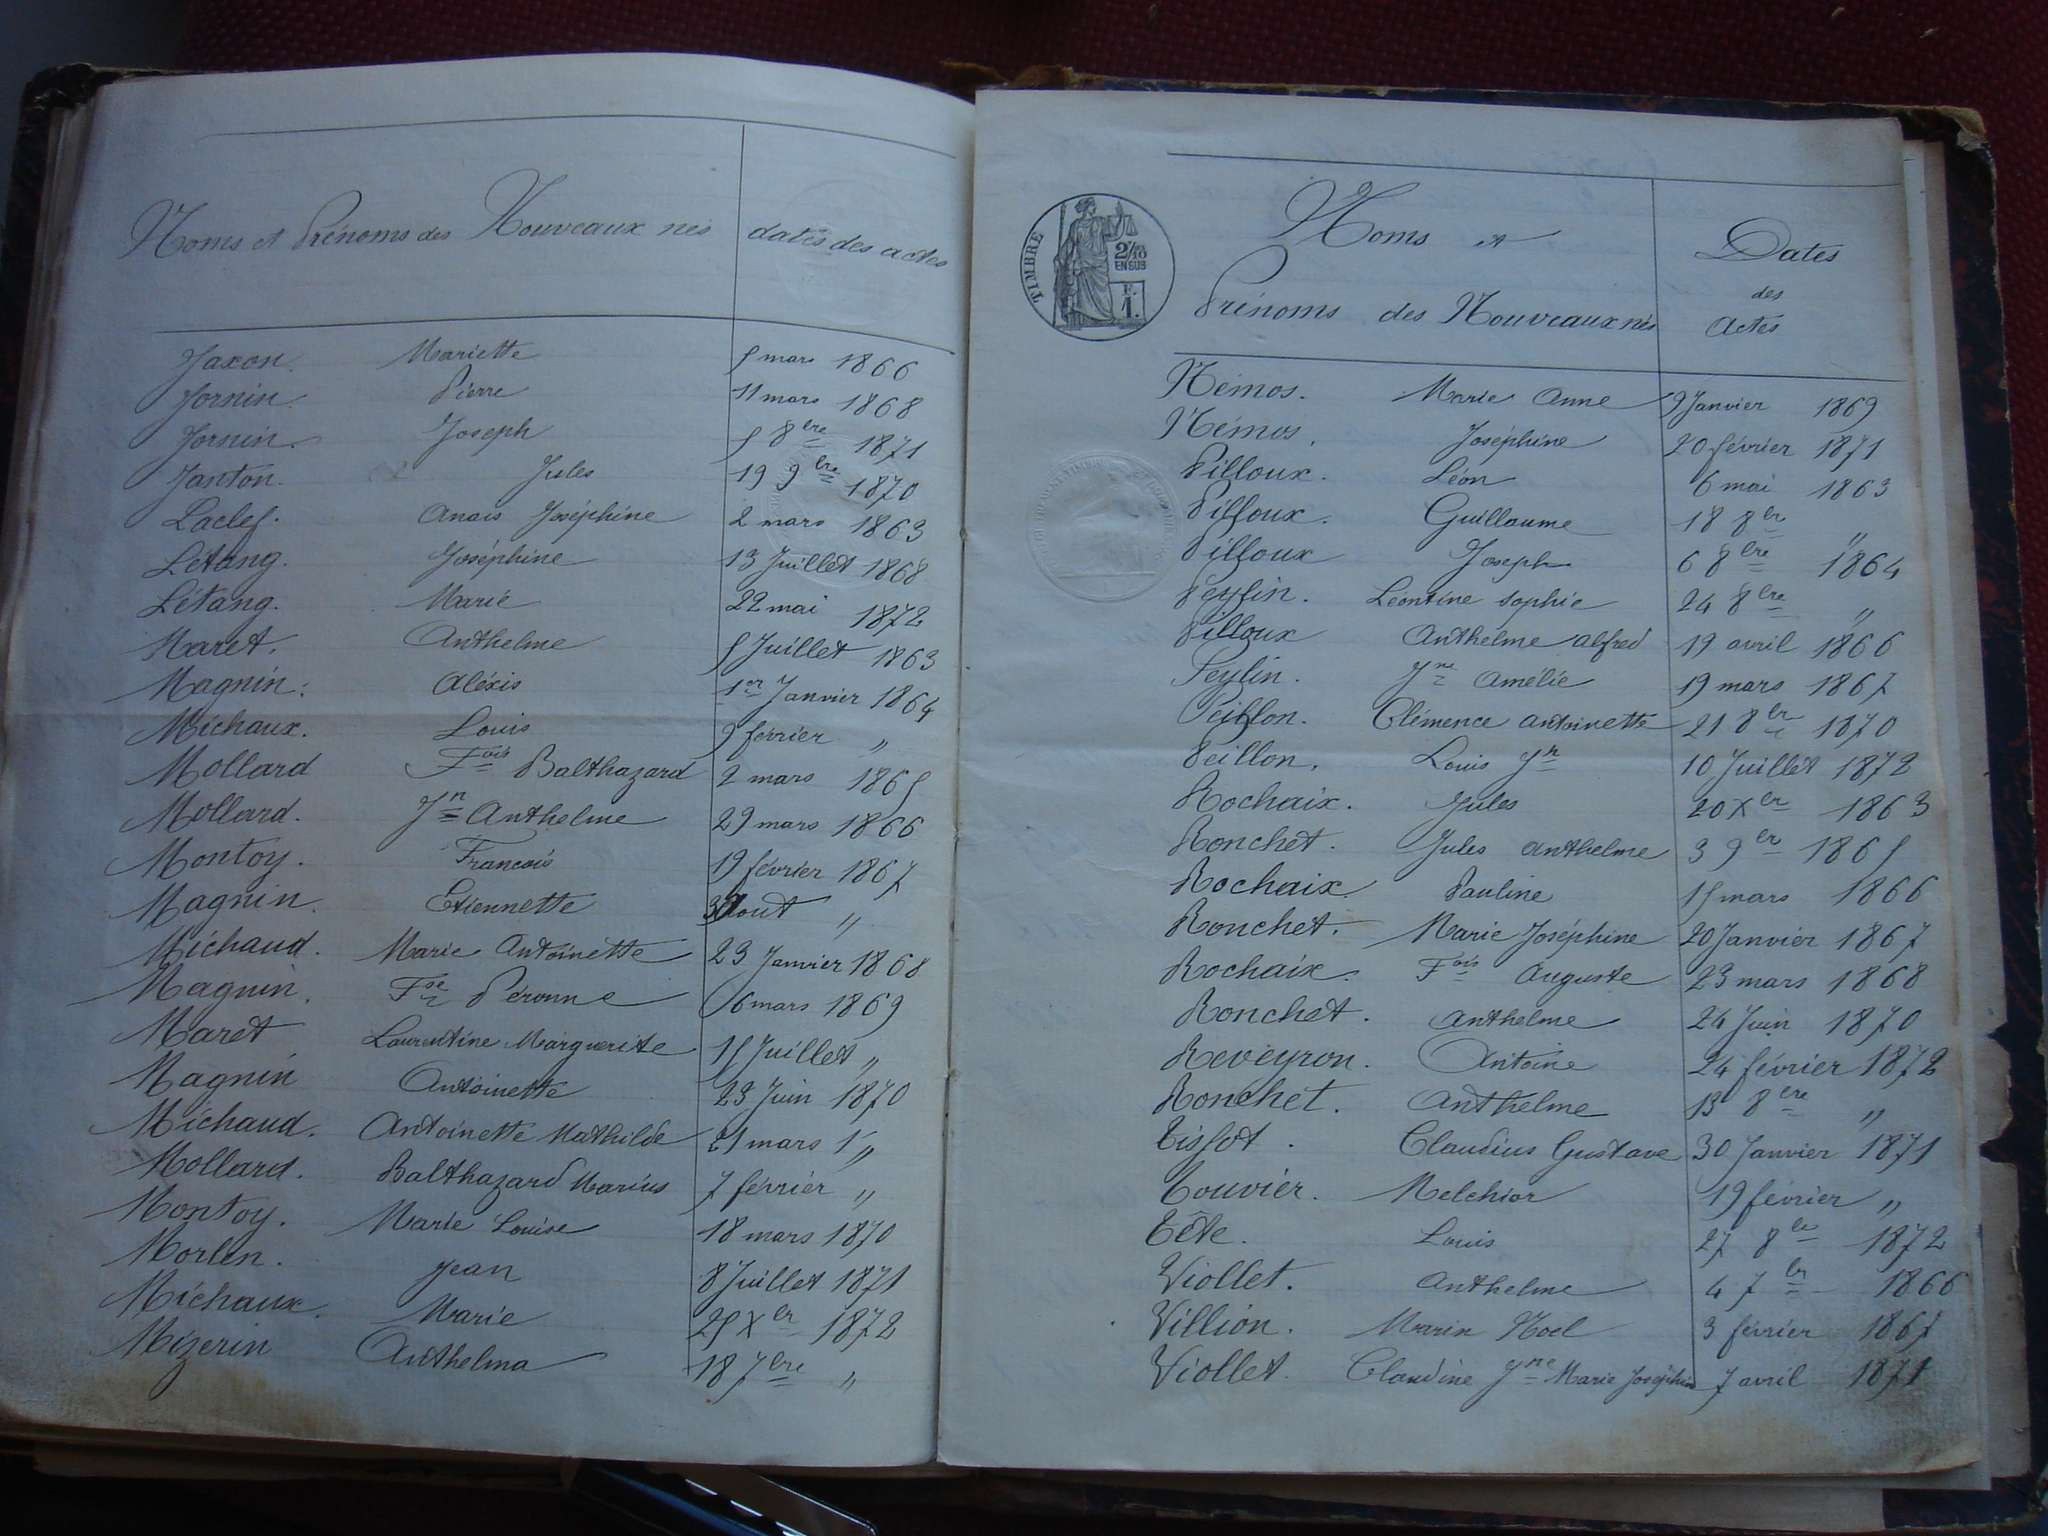 Noms et Prénoms des Nouveaux nés dates des actes
Jaxon. Mariette 5 mars 1866
Jornin. Pierre 11 mars 1868
Jornin. Joseph 5 8bre 1871
Janton. Jules 19 9bre 1870
Laclef. Anais Joséphine 2 mars 1863
Létang. Joséphine 13 Juillet 1868
Létang. Marie 22 mai 1872
Maret. Anthelme 5 Juillet 1863
Magnin. Aléxis 1er Janvier 1864
Michaux. Louis 9 février "
Mollard Fois Balthazard 2 mars 1865
Mollard. Jn Anthelme 29 mars 1866
Montoy. Francois 19 février 1867
Magnin. Etiennette Aout "
Michaud. Marie Antoinette 23 Janvier 1868
Magnin. Fse Péronne 6 mars 1869
Maret Laurentine Marguerite 15 Juillet "
Magnin Antoinette 23 Juin 1870
Michaud. Antoinette Mathilde 21 mars "
Mollard. Balthazard Marius 7 février "
Montoy. Marie Louise 18 mars 1870
Morlin. Jean 8 Juillet 1871
Michaux. Marie 25 Xer 1872
Mizerin Anthelma 18 7bre "
TIMBRE
2/10
EN SUS
F.
1.
Noms et
Prénoms des Nouveaux nés
Dates
des
Actes
Némos. Marie Anne 9 Janvier 1869
Némos. Joséphine 20 février 1871
Pilloux. Léon 6 mai 1863
Pilloux. Guillaume 18 8br "
Pilloux Joseph 6 8bre 1864
Peylin. Léontine Sophie 24 8bre "
Pilloux Anthelme Alfred 19 avril 1866
Peylin. Jne Amélie 19 mars 1867
Peillon. Clémence Antoinette 21 8br 1870
Peillon. Louis Jh 10 Juillet 1872
Rochaix. Jules 20 Xer 1863
Ronchet. Jules Anthelme 3 9er 1865
Rochaix Pauline 15 mars 1866
Ronchet. Marie Joséphine 20 Janvier 1867
Rochaix. Fois Auguste 23 mars 1868
Ronchet. Anthelme 24 Juin 1870
Reveyron. Antoine 24 février 1872
Ronchet. Anthelme 13 8bre "
Tissot. Claudius Gustave 30 Janvier 1871
Touvier. Melchior 19 février "
Tête. Louis 27 8be 1872
Viollet. Anthelme 4 7br 1866
Villion. Marin Noel 3 février 1867
Viollet. Claudine Jne Marie Joséphine 7 avril 1871